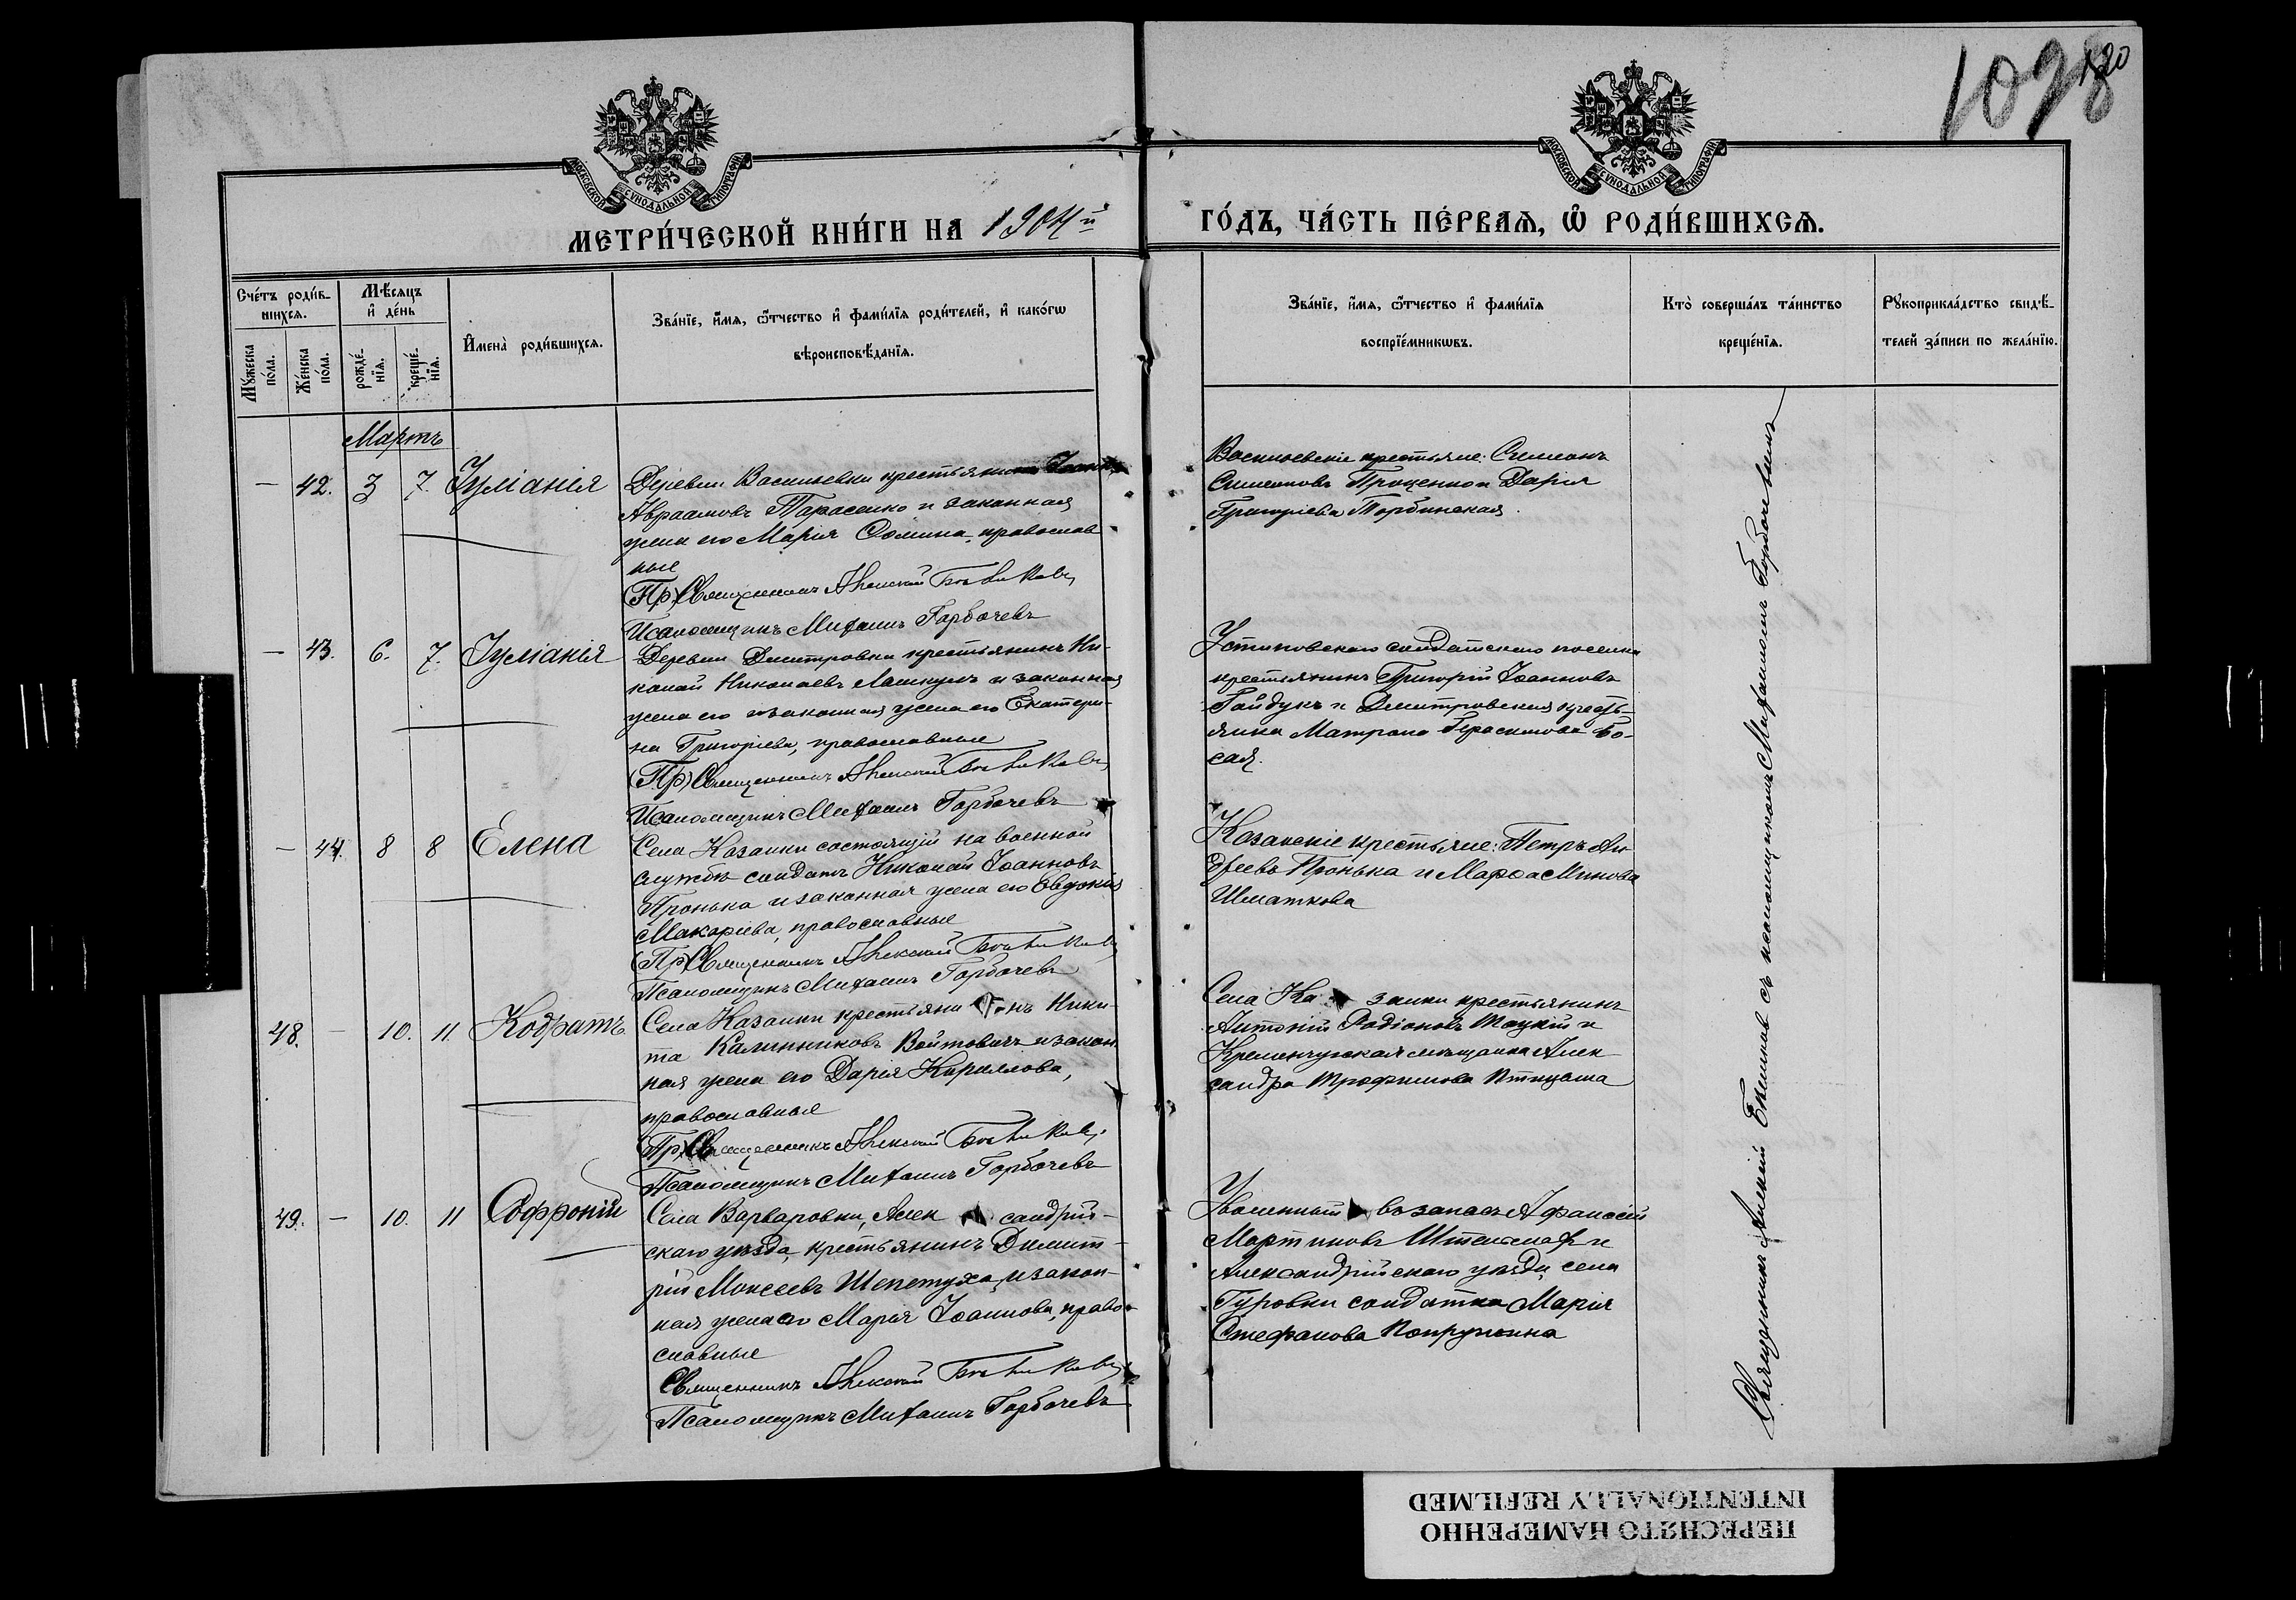 1098
120
МОСКОВСКОЙ СѴНОДАЛЬНОЙ ТИПОГРАФІИ
МОСКОВСКОЙ СѴНОДАЛЬНОЙ ТИПОГРАФІИ
МЕТРИ́ЧЕСКОЙ КНИ́ГИ НА 1904й
ГО́ДЪ, ЧА́СТЬ ПЕ́РВАЯ, Ѽ РОДИ́ВШИХСЯ.
Сче́тъ роди́в-
шихся.
Мꙋ́жеска по́ла.
Же́нска по́ла.
Мѣ́сяцъ и҆ де́нь
рожде́-нїя.
креще́-нїя.
И҆мена̀ роди́вшихся.
Зва́нїе, и҆́мя, ѻ҆́тчество и҆ фами́лїя роди́телей, и҆ како́гѡ
вѣроисповѣ́данїя.
Зва́нїе, и҆́мя, ѻ҆́тчество и҆ фами́лїя
воспрїе́мникѡвъ.
Кто̀ соверша́лъ та́инство
креще́нїя.
Рꙋкоприкла́дство свидѣ́-
телей за́писи по жела́нїю.
Мартъ
— 42. 3 7. Іуліанія
Деревни Васильевки крестьянинъ Іоаннъ
Авраамовъ Тарасенко и законная
жена его Марія Ѳомина, православ
ные
(Пр) Священникъ Алексій
Псаломщикъ Михаилъ Горбачевъ
Васильевскіе крестьяне: Симеонъ
Симеоновъ Проценко и Дарія
Григоріева Торбинская.
— 43. 6. 7. Іуліанія
Деревни Димитровки крестьянинъ Ни-
колай Николаевъ Лашкулъ и законная
жена его и законная жена его Екатери-
на Григоріева, православные
(Пр) Священникъ Алексій
Псаломщикъ Михаилъ Горбачевъ
Устиновскаго солдатскаго поселка
крестьянинъ Григорій Іоанновъ
Гайдукъ и Димитровская кресть-
янка Матрона Герасимова Бо-
сая.
— 44. 8 8 Елена
Села Казанки состоящій на военной
службѣ солдатъ Николай Іоанновъ
Пронька и законная жена его Евдокія
Макаріева, православные
(Пр) Священникъ Алексій
Псаломщикъ Михаилъ Горбачевъ
Казанскіе крестьяне: Петръ Ан
дреевъ Пронька и Марѳа Минова
Шматкова
48. — 10. 11. Кодратъ
Села Казанки крестьянинъ Ники-
та Калинниковъ Войтовичъ и закон
ная жена его Дарія Кириллова,
православные
(Пр) Священникъ Алексій
Псаломщикъ Михаилъ Горбачевъ
Села Казанки крестьянинъ
Антоній Родіоновъ Тоцкій и
Кременчугская мѣщанка Алек
сандра Трофимова Птицына
49. — 10. 11 Софроній
Села Варваровки, Александрій-
скаго уѣзда, крестьянинъ Димит-
рій Моисеевъ Шепетуха и закон-
ная жена его Марія Іоаннова, право-
славные
Священникъ Алексій
Псаломщикъ Михаилъ Горбачевъ
Уволенный въ запасъ Афанасій
Мартиновъ и
Александрійскаго уѣзда, села
Гуровки солдатка Марія
Стефанова Попружина
Священникъ Алексій съ псаломщикомъ Михаиломъ Горбачевымъ
ПЕРЕСНЯТО НАМЕРЕННО
INTENTIONALLY REFILMED